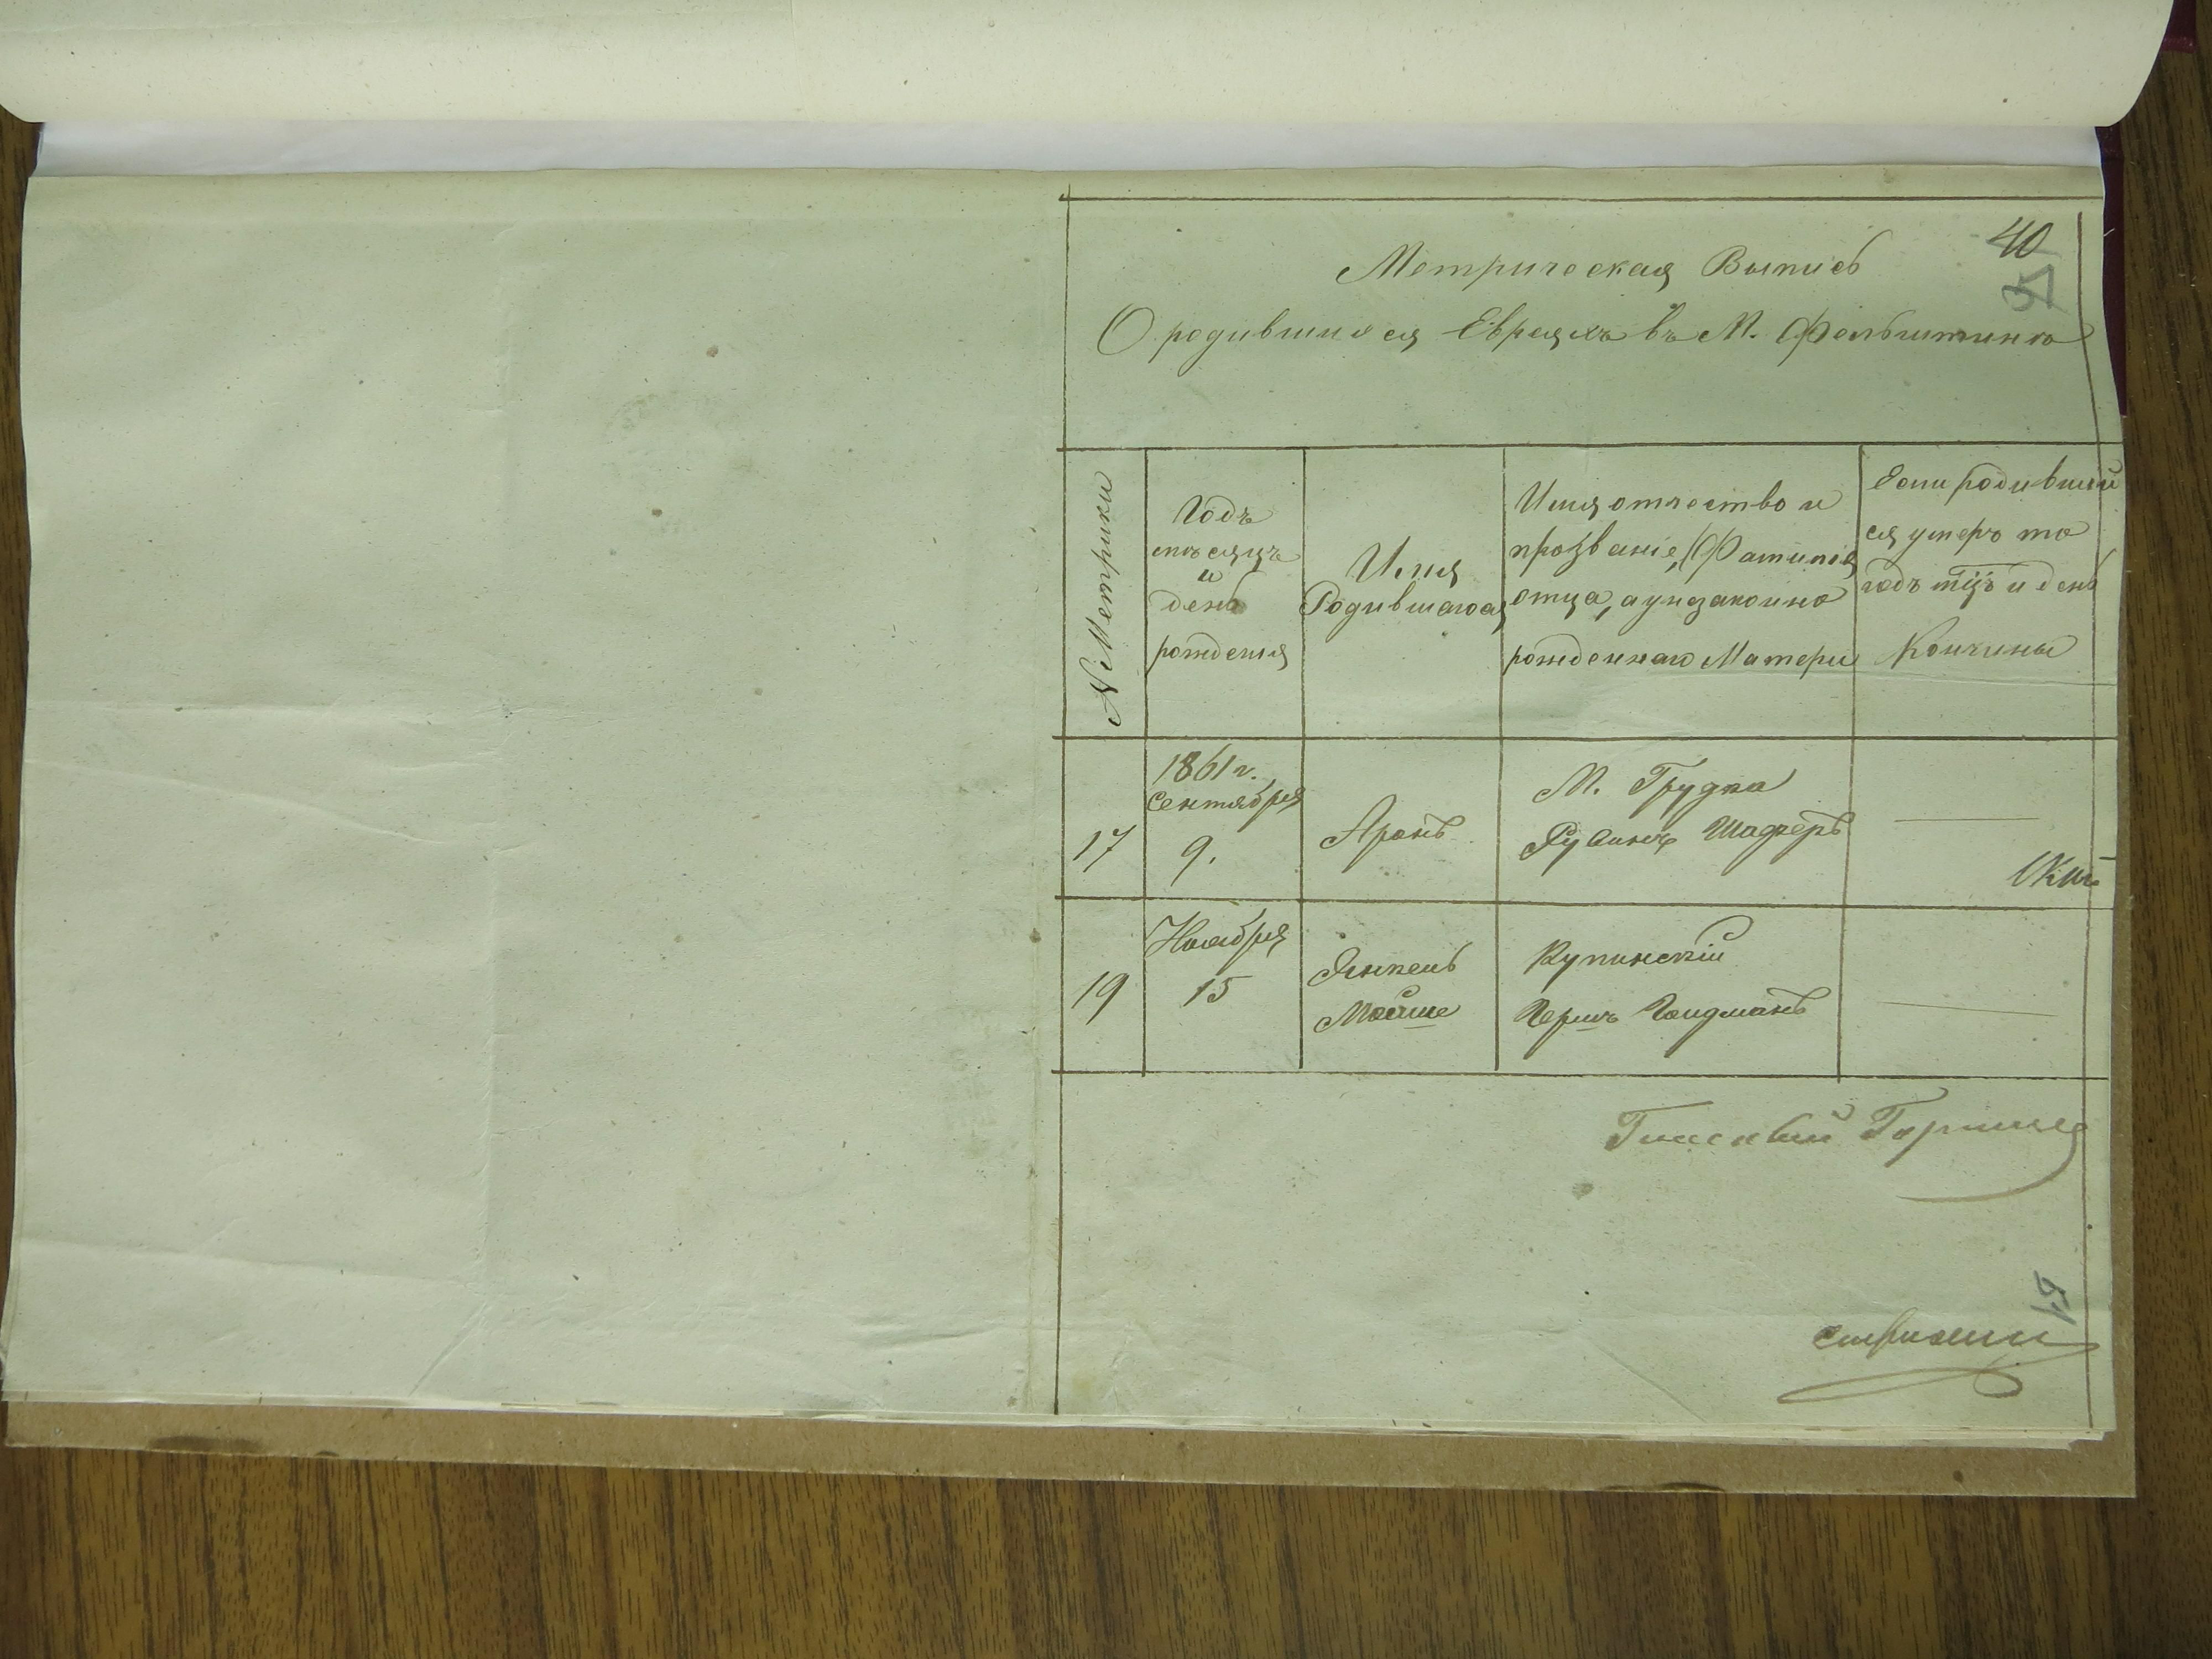 40
Метрическая Выпись
О родившихся Евреяхъ въ М. Фельштинѣ
№ Метрики
Годъ
мѣсяцъ
и
день
рожденія
Имя
Родившагося
Имя отчество и
прозваніе, (Фамилія
отца, а у незаконно
рожденнаго Матери
Если родившій
ся умеръ то
годъ мцъ и день
Кончины
17
1861 г.
Сентября
9.
Аронъ
М. Грудка
Рувинъ
19
Ноября
15
Янкель
Мойше
Купинскій
Гершъ Гоидманъ